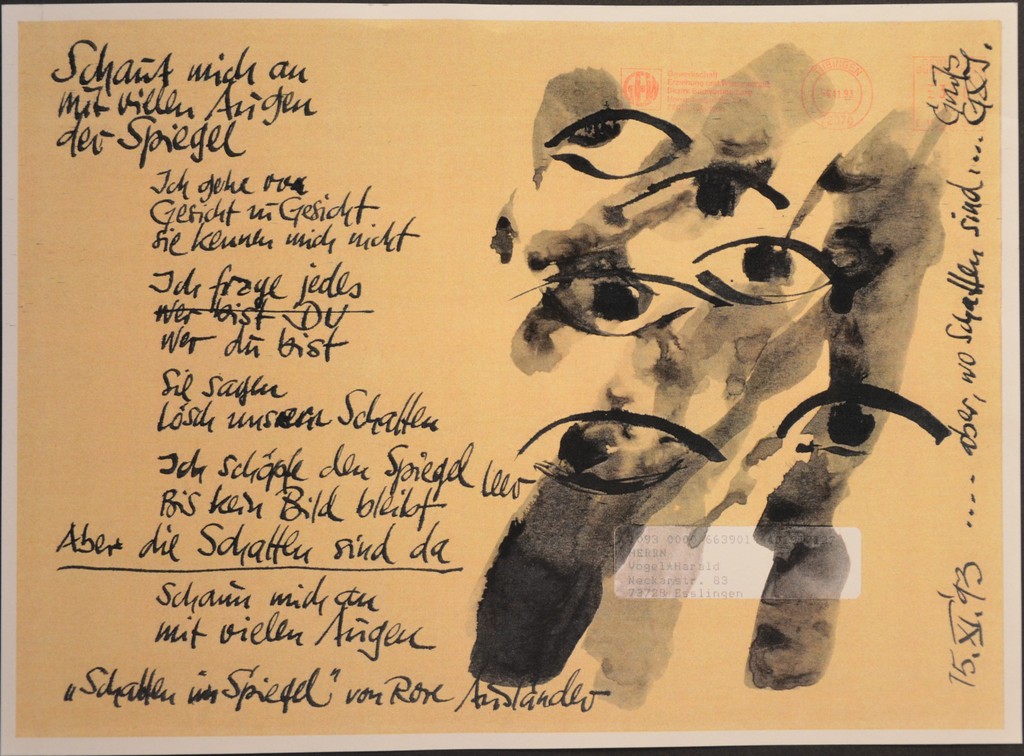 Schaut mich an
mit vielen Augen
der Spiegel
Ich gehe von
Gesicht zu Gesicht
sie kennen mich nicht
Ich frage jedes
wer bist DU
wer du bist
Sie sagen
Lösch unsern Schatten
Ich schöpfe den Spiegel leer
Bis kein Bild bleibt
Aber die Schatten sind da
Schaun mich an
mit vielen Augen
"Schatten im Spiegel" von Rose Ausländer
GEW
HERRN
Vogel Harald
Neckarstr. 83
73728 Esslingen
15. XI. '93 ..... aber, wo Schatten sind ....